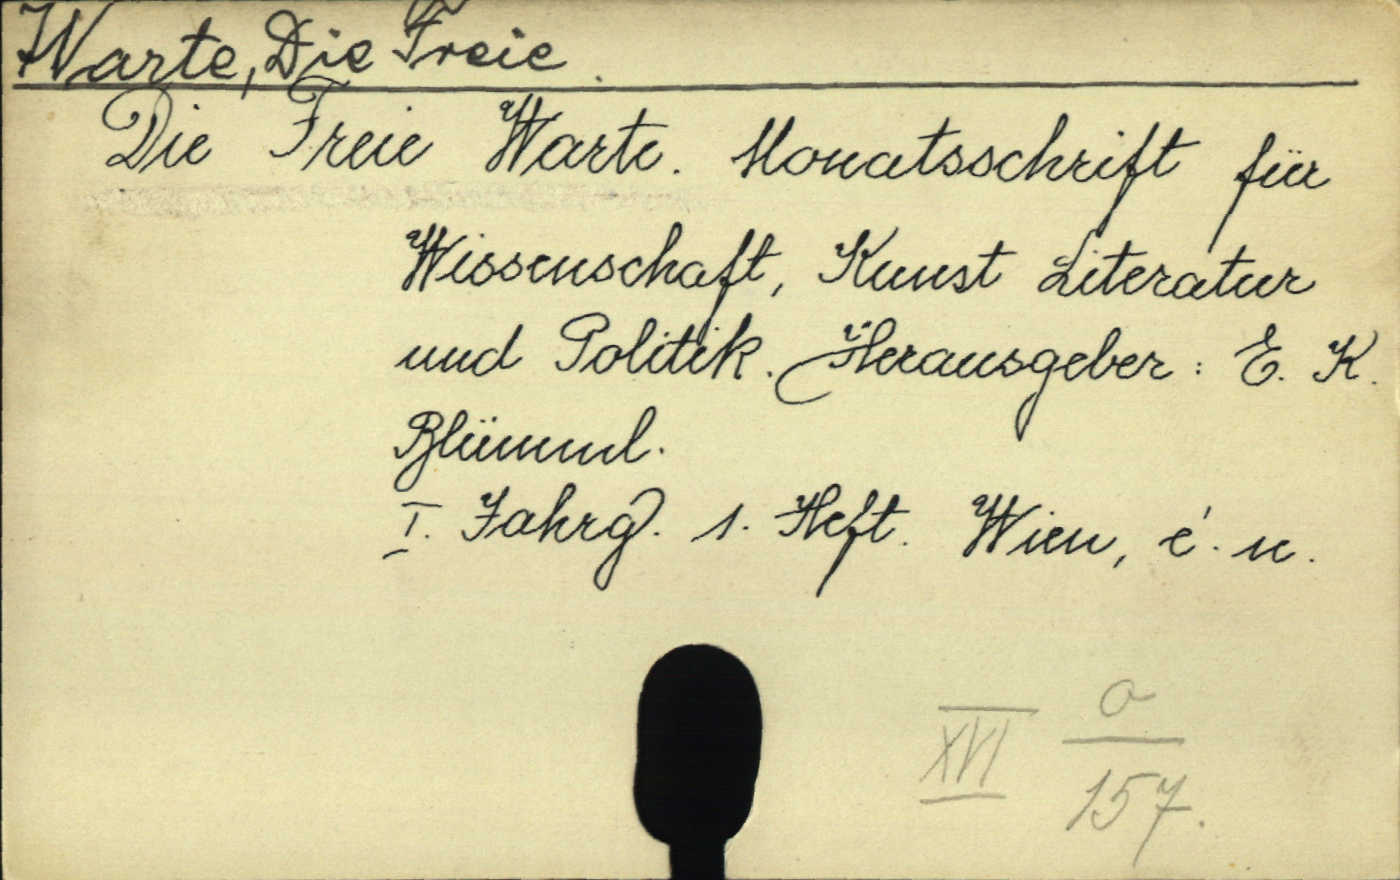 Warte, Die Freie.
Die Freie Warte. Monatsschrift für
Wissenschaft, Kunst Literatur
und Politik. Herausgeber: E. K.
Blümml.
I. Jahrg. 1. Heft. Wien, é. n.
XVI a
157.